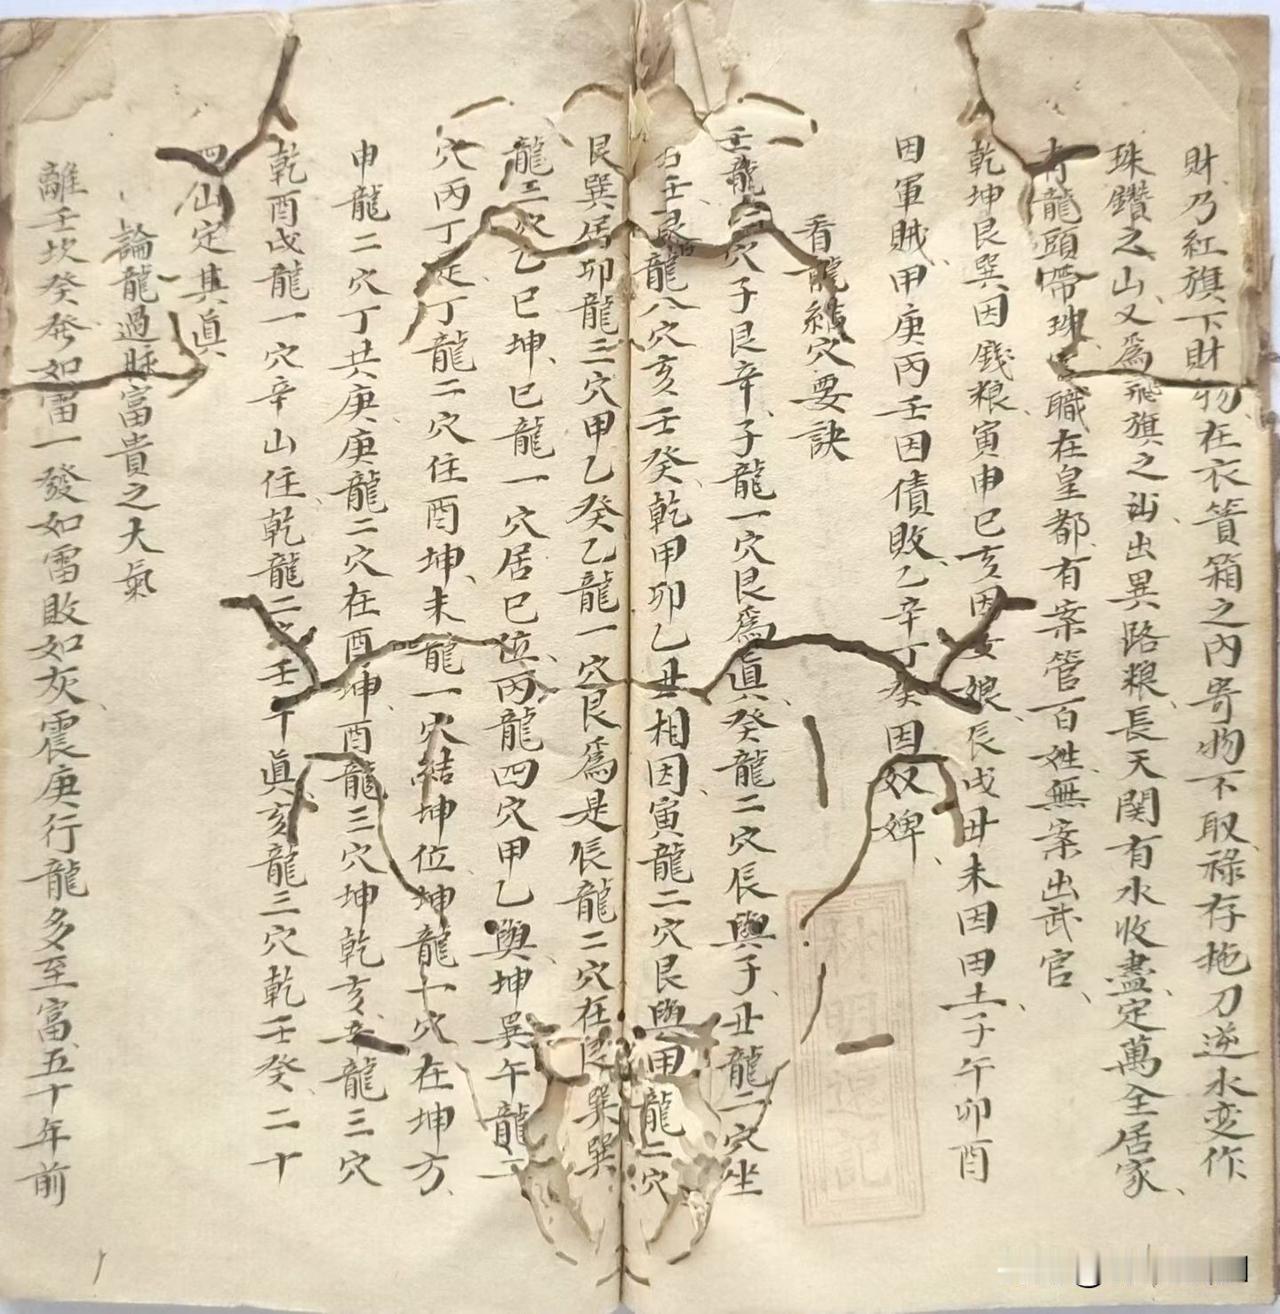 財乃紅旗下財物在衣簣箱之內寄物不取祿存拖刀逆水变作
珠鑽之山又為飛旗之出異路粮長天関有水收盡定萬全居家
龍頭帶珠職在皇都有案管百姓無案出武官
乾坤艮巽因錢粮寅申巳亥因女娘辰戌丑未因田土子午卯酉
因軍賊甲庚丙壬因債敗乙辛丁癸因奴婢
看龍結穴要訣
壬龍穴子艮辛子龍一穴艮為真癸龍二穴辰與子丑龍二穴坐
壬艮龍八穴亥壬癸乾甲卯乙丑相因寅龍二穴艮與甲龍二穴
艮巽居卯龍三穴甲乙癸乙龍一穴艮為是辰龍二穴在巽巽
龍三穴乙巳坤巳龍一穴居巳位丙龍四穴甲乙與坤巽午龍二
穴丙丁是丁龍二穴住酉坤未龍一穴結坤位坤龍七穴在坤方
申龍二穴丁共庚庚龍二穴在酉坤酉龍三穴坤乾亥辛龍三穴
乾酉戌龍一穴辛山住乾龍二穴壬真亥龍三穴乾壬癸二十
四山定其真
論龍過脉富貴之大氣
離壬坎癸癸如雷一發如雷敗如灰震庚行龍多至富五十年前
利明遠記